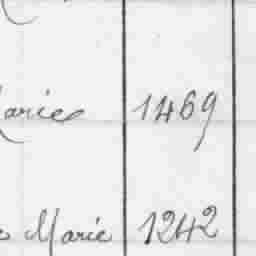 Marie 1469
Marie 1242